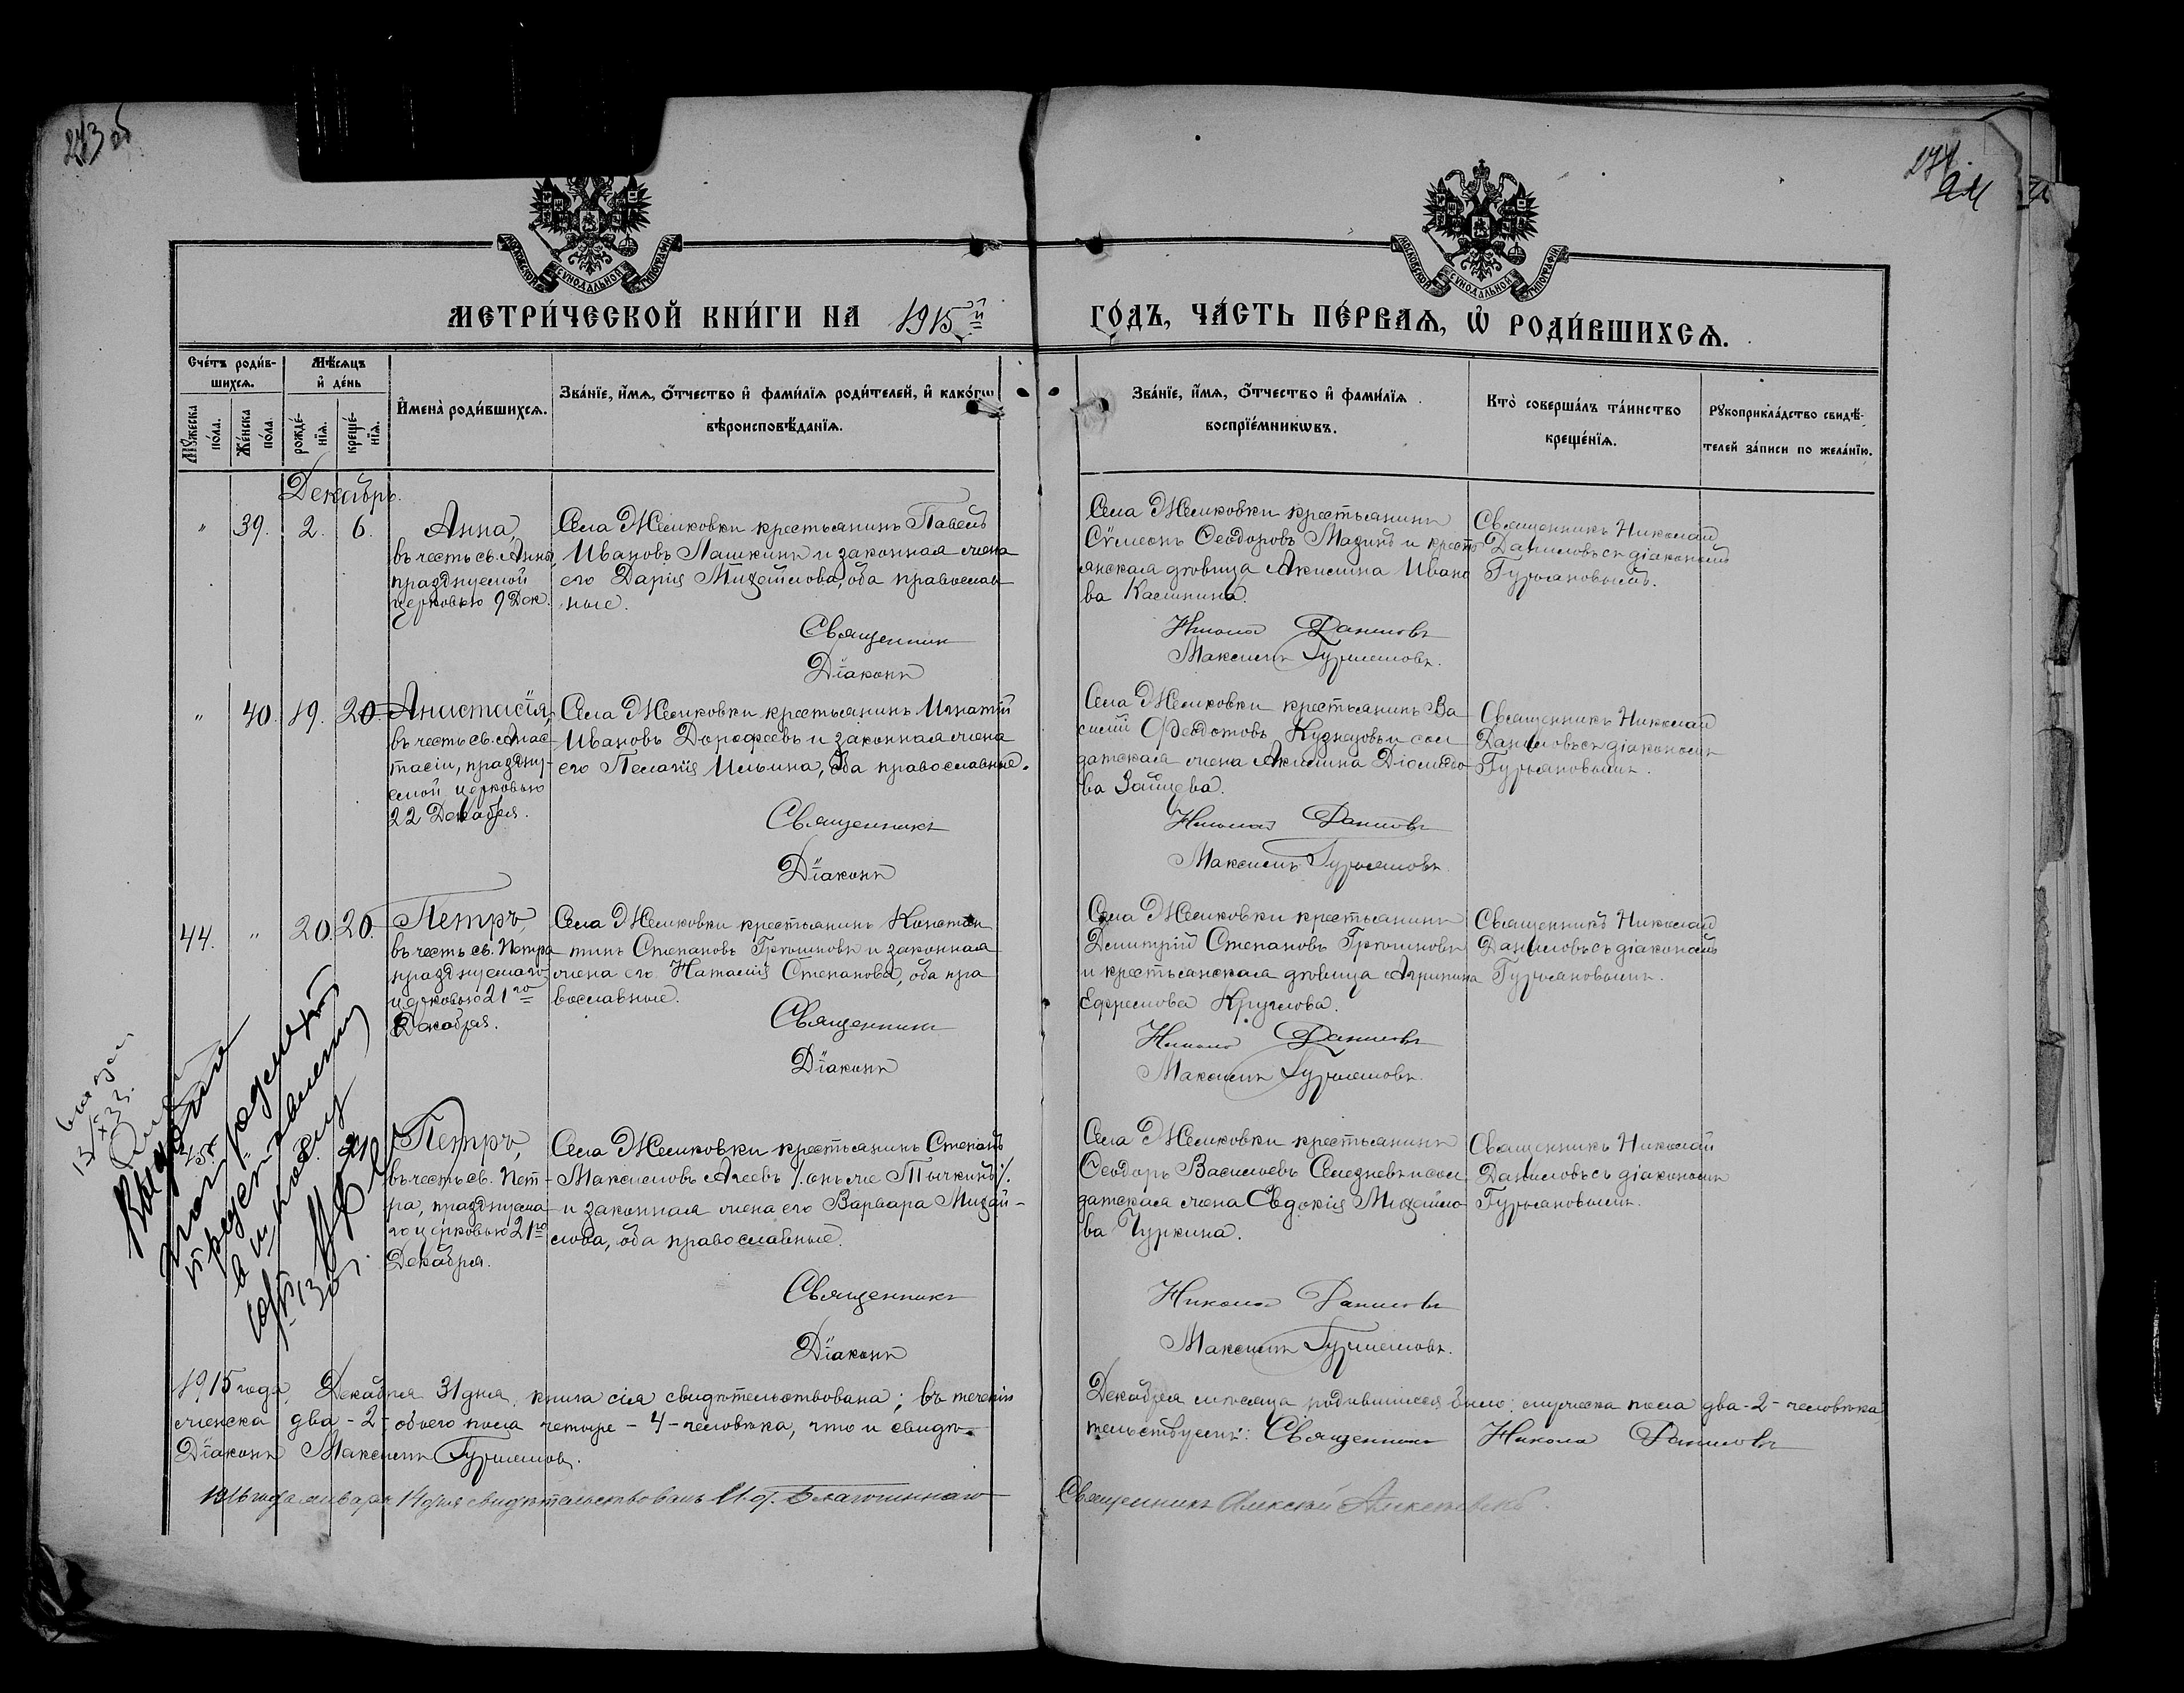 273 об
274.
МОСКОВСКОЙ СУНОДАЛЬНОЙ ТИПОГРАФІИ
МОСКОВСКОЙ СУНОДАЛЬНОЙ ТИПОГРАФІИ
МЕТРИ́ЧЕСКОЙ КНИ́ГИ НА 1915й ГО́ДЪ, ЧА́СТЬ ПЕ́РВАѦ, Ѡ РОДИ́ВШИХСѦ.
Сче́тъ роди́в-
шихсѧ.
Мꙋ́жеска по́ла.
Же́нска по́ла.
Мѣ́сѧцъ и де́нь
рожде́-
нїѧ.
креще́-
нїѧ.
Имена̀ роди́вшихсѧ.
Зва́нїе, и́мѧ, о́тчество и фами́лїѧ роди́телей, и како́гѡ
вѣроисповѣ́данїѧ.
Зва́нїе, и́мѧ, о́тчество и фами́лїѧ
воспрїе́мникѡвъ.
Кто̀ соверша́лъ та́инство
креще́нїѧ.
Рꙋкоприкла́дство свидѣ́-
телей за́писи по жела́нїю.
Декабрь.
" 39. 2. 6.
Анна,
въ честь св. Анны,
празднуемой
церковью 9 Дек.
Села Жемковки крестьянинъ Павелъ
Ивановъ Пашкинъ и законная жена
его Дарія Михайлова, оба православ-
ные.
Священник
Діаконъ
Села Жемковки крестьянинъ
Сѵмеонъ Ѳеодоровъ Мазинъ и кресть
янская дѣвица Акилина Ивано
ва Калинкина.
Николай Даниловъ
Максимъ Гурьяновъ.
Священникъ Николай
Даниловъ съ діакономъ
Гурьяновымъ.
" 40. 19. 20.
Анастасія,
въ честь св. Анас-
тасіи, праздну-
емой церковью
22 Декабря.
Села Жемковки крестьянинъ Игнатій
Ивановъ Дорофеевъ и законная жена
его Пелагія Ильина, оба православные.
Священникъ
Діаконъ
Села Жемковки крестьянинъ Ва
силій Федотовъ Кузнецовъ и сол
датская жена Акилина Діомидо
ва Зайцева.
Николай Даниловъ
Максимъ Гурьяновъ.
Священникъ Николай
Даниловъ съ діакономъ
Гурьяновымъ.
44. " 20. 20.
Петръ,
въ честь св. Петра
празднуемаго
церковью 21го
Декабря.
Села Жемковки крестьянинъ Констан
тинъ Степановъ Грѣшновъ и законная
жена его Наталія Степанова, оба пра
вославные.
Священникъ
Діаконъ
Села Жемковки крестьянинъ
Димитрій Степановъ Грѣшновъ
и крестьянская дѣвица Агрипина
Ефремова Круглова.
Николай Даниловъ
Максимъ Гурьяновъ.
Священникъ Николай
Даниловъ съ діакономъ
Гурьяновымъ.
Петръ,
въ честь св. Пет-
ра, празднуема
го церковью 21го
Декабря.
Села Жемковки крестьянинъ Степанъ
Максимовъ Агеевъ /: онъ же Тычкинъ :/
и законная жена его Варвара Михай-
лова, оба православные.
Священникъ
Діаконъ
Села Жемковки крестьянинъ
Ѳеодоръ Васильевъ Селезневъ и сол
датская жена Евдокія Михайло
ва Чуркина.
Николай Даниловъ
Максимъ Гурьяновъ.
Священникъ Николай
Даниловъ съ діакономъ
Гурьяновымъ.
1915 года, Декабря 31 дня, книга сія свидѣтельствована; въ теченіи Декабря мѣсяца родившихся было: мужеска пола два-2-человѣка
женска два-2-обоего пола четыре-4-человѣка, что и свидѣ-тельствуемъ: Священникъ Николай Даниловъ
Діаконъ Максимъ Гурьяновъ.
1916 года января 14 дня свидѣтельствовалъ И. д. Благочиннаго Священникъ Алексѣй